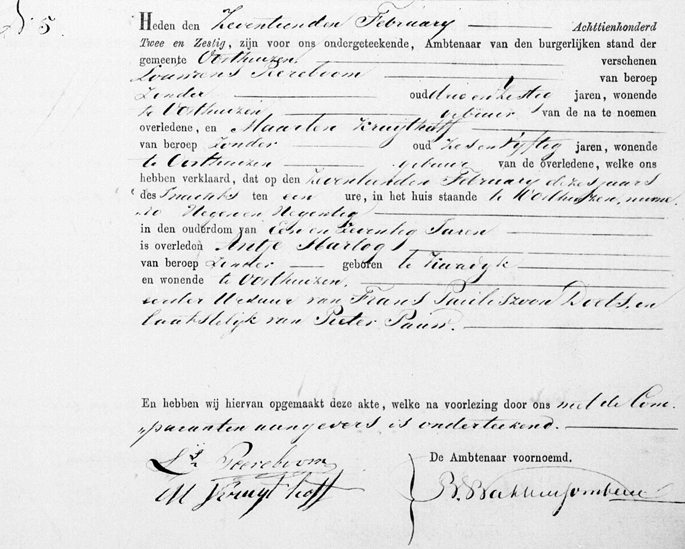 N° 5.
Heden den Zeventienden February Achttienhonderd
Twee en Zestig, zijn voor ons ondergeteekende, Ambtenaar van den burgerlijken stand der
gemeente Oosthuizen verschenen
Louwrens Peereboom van beroep
Zonder oud drieenzestig jaren, wonende
te Oosthuizen gebuur van de na te noemen
overledene, en Maarten Kruythoff
van beroep Zonder oud Zesenvyftig jaren, wonende
te Oosthuizen gebuur van de overledene, welke ons
hebben verklaard, dat op den Zeventienden February dezes jaars
des Smiddags ten een ure, in het huis staande te Oosthuizen, numme
ro Negen en Negentig
in den ouderdom van Een en Zeventig Jaren
is overleden Antje Hartog
van beroep Zonder geboren te Kwadyk
en wonende te Oosthuizen,
eerder Weduwe van Frans Pauluszoon Doets, en
laatstelijk van Pieter Pauw.
En hebben wij hiervan opgemaakt deze akte, welke na voorlezing door ons met de Com-
paranten aangevers is onderteekend.
De Ambtenaar voornoemd.
Ls Peereboom
M Kruythoff